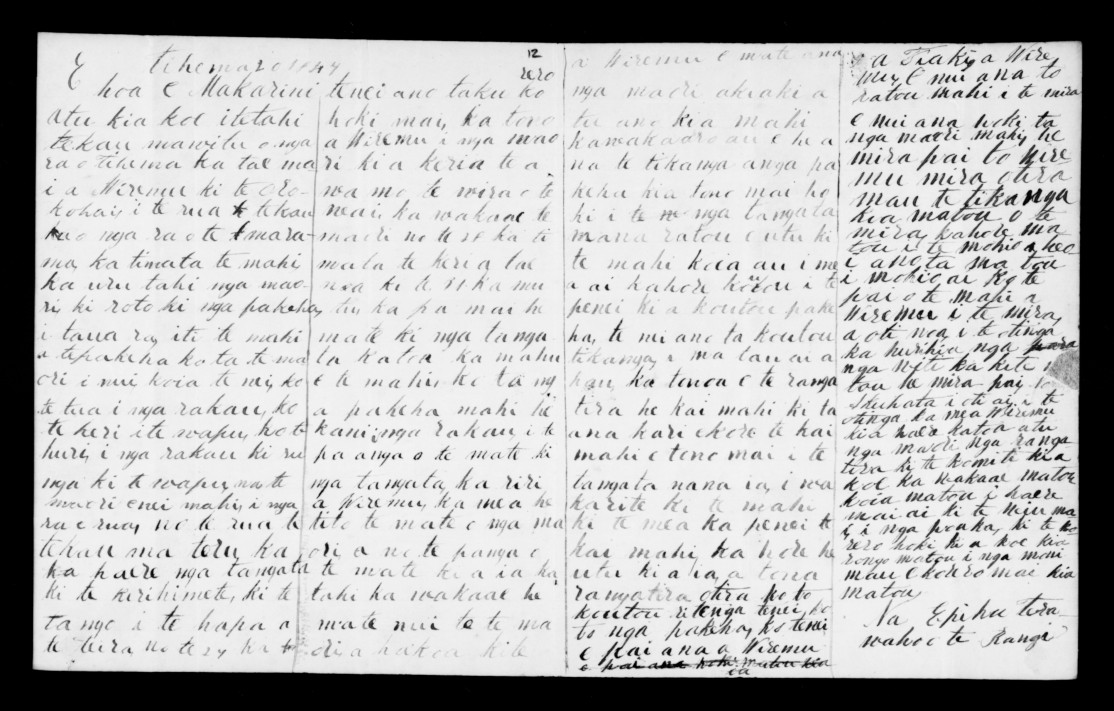 12
E hoa e Makarini
atu kia koe i te tahi
tekau mawitu o nga
ra o tihema ka tae ma
i a Wiremu ki te Oro-
kohai, i te rua tekau
o nga ra o te mara-
ma, ka timata te mahi
ka uru tahi nga mao-
ri, ki roto ki nga pakeha,
i taua ra, iti te mahi
a te pakeha ko ta te ma
ori i nui koia te nei, ko
te tua i nga rakau, ko
te keri i te wapu, ko te
huri, i nga rakau ki ru
nga ki te wapu, na te
maori enei mahi, i nga
ra e rua, no te rua te
tekau ma toru, ka
ka haere nga tangata
ki te Kirihimete, ki te
tango i te hapa a
te teira no te 27, ka
rero
tenei ano taku ko
hoki mai, ka tono
a Wiremu i nga mao
ri kia keria te a
wa mo te wira o te
wai, ka wakaae te
maori no te 28 ka ti
mata te keria tae
noa ki te 31 ka mu
tu, ka pa mai he
mate ki nga tanga-
ta katoa ka mahu
e te mahi, ko ta ng
a pakeha mahi he
kani i nga rakau, i te
pa anga o te mate ki
nga tangata, ka riri
a Wiremu, ka mea he
tito te mate o nga ma
ori a no te panga o
te mate ki a ia ka
tahi ka wakaae he
mate nui to te ma
ori a hokoa ki te
a Wiremu e mate ana
nga maori akiaki a
tu ano kia mahi
ka wakaaro au e he a
na te tikanga anga pa
keha kia tono mai ho
ki i te nga tangata
mana ratou e utu ki
te mahi koia au i me
a ai kahore koutou i te
penei ki a koutou pake
ha, te mi ano ta koutou
tikanga, i ma tau ai a
hau, ka tonoa e te ranga
tira he kai mahi ki ta
ana kari ekore te kai
mahi e tono mai i te
tangata nana ia, i wa
karite ki te mahi
ki te mea ka penei te
kai mahi, ka hore he
utu ki a ia, a tona
rangatira otira ko to
koutou ritenga tenei, ko
to nga pakeha, ko tenei
e pai ana a Wiremu
ia
a Tiaki, a Wire
mu, e nui ana to
ratou mahi i te mira
e nui ana hoki ta
nga maori mahi, he
mira pai to Wire
mu mira otira
mau te tikanga
kia matou o te
mira, kahore ma
tou i te mohio
i ano ta na toa
i mohio ai ko te
pai o te mahi a
Wiremu i te mira,
a oti noa, i te otinga
ka hurihia, nga
nga witi ka kite
tou he mira pai,
Akuhata i oti ai, i te
otinga ka mea Wiremu
kia haere katoa atu
nga maori nga ranga
tira ki te komiti kia
koe ka wakaae matou
koia matou i haere
mai ai ki te
i nga poaka, ki te ko
rero hoki ki a koe kia
rongo matou i nga moni
mau e korero mai kia
matou
Na Epiha
wahoo te Rangi